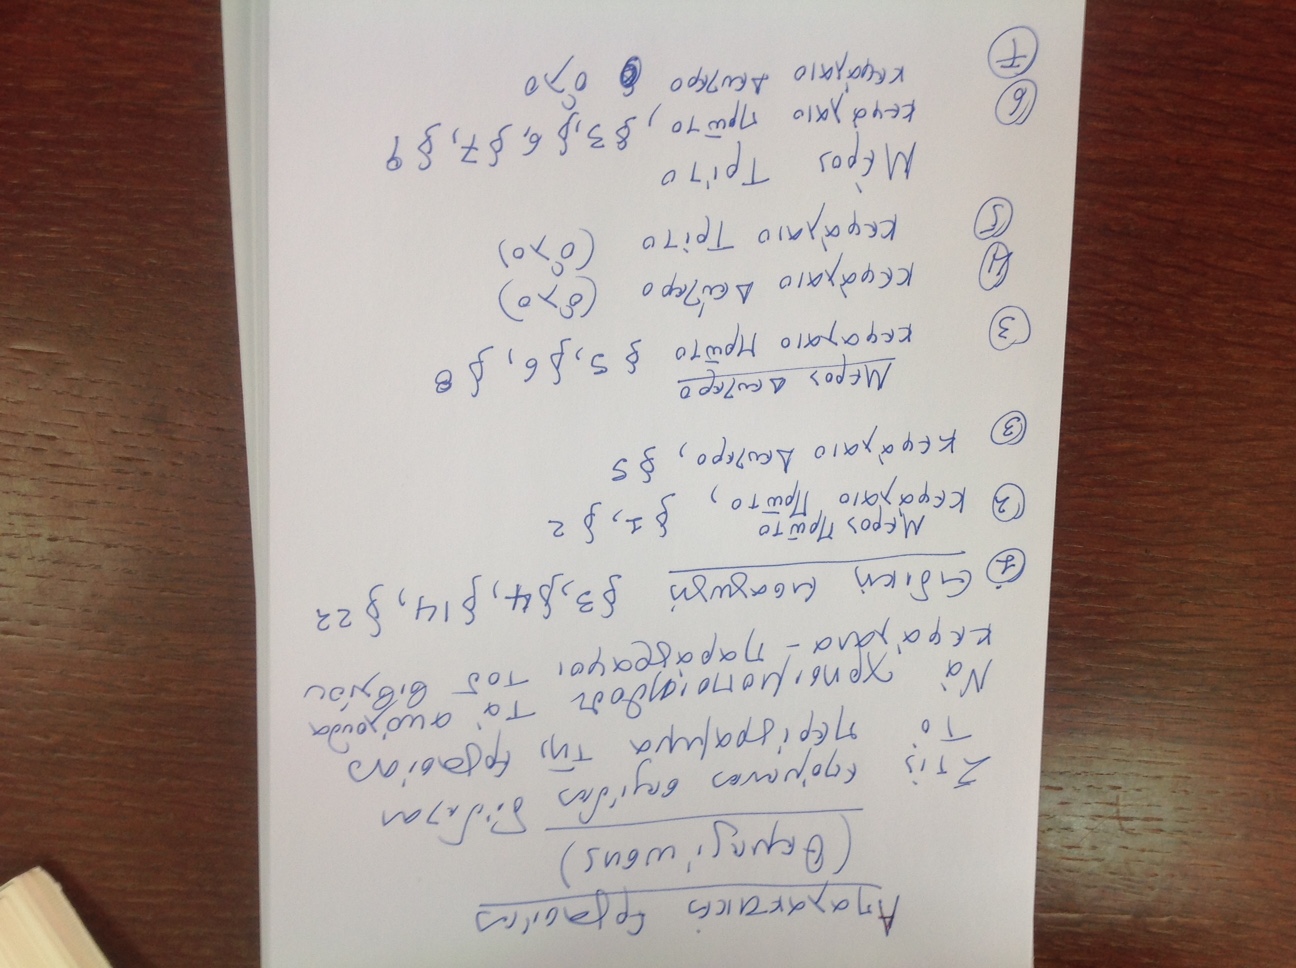 Ἀπαλλακτικὲς Ἐργασίες
(Θεμελιώσεις)
Στὶς ἑπόμενες σελίδες δίδεται
Τὸ περίγραμμα τῆς ἐργασίας
Νὰ χρησιμοποιηθοῦν Τὰ ἀκόλουθα
Κεφάλαια - Παράγραφοι τοῦ βιβλίου
① Εἰδικὴ εἰσαγωγὴ §3, §4, §14, §22
Μέρος Πρῶτο
② Κεφάλαιο Πρῶτο, §1, §2
③ Κεφάλαιο Δεύτερο, §5
Μέρος Δεύτερο
③ Κεφάλαιο Πρῶτο §5, §6, §8
④ Κεφάλαιο Δεύτερο (ὅλο)
⑤ Κεφάλαιο Τρίτο (ὅλο)
Μέρος Τρίτο
⑥ Κεφάλαιο Πρῶτο, §3, §6, §7, §9
⑦ Κεφάλαιο Δεύτερο ὅλο